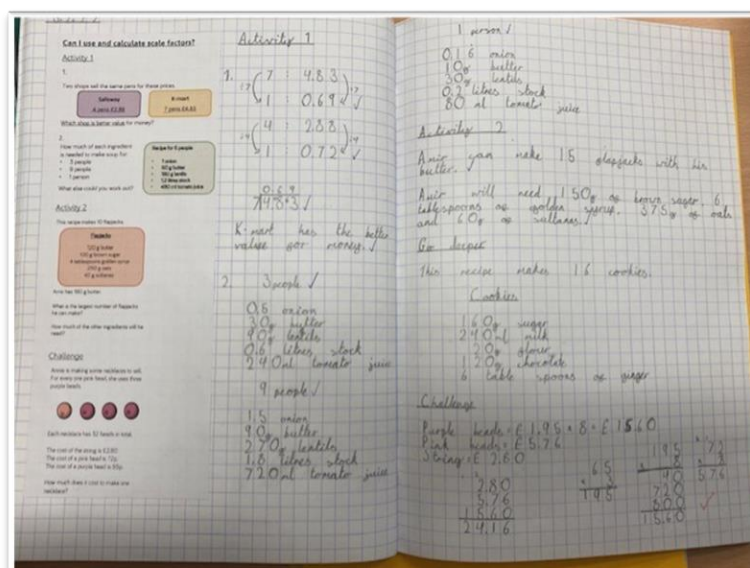 Can I use and calculate scale factors?
Activity 1
1.
Two shops sell the same pens for these prices.
Safeway
4 pens £2.88
K-mart
7 pens £4.83
Which shop is better value for money?
2.
How much of each ingredient
is needed to make soup for:
• 3 people
• 9 people
• 1 person
What else could you work out?
Recipe for 6 people
• 1 onion
• 60 g butter
• 180 g lentils
• 1.2 litres stock
• 480 ml tomato juice
Activity 2
This recipe makes 10 flapjacks
Flapjacks
120 g butter
100 g brown sugar
4 tablespoons golden syrup
250 g oats
40 g sultanas
Amir has 180 g butter.
What is the largest number of flapjacks
he can make?
How much of the other ingredients will he
need?
Challenge
Annie is making some necklaces to sell.
For every one pink bead, she uses three
purple beads.
Each necklace has 32 beads in total.
The cost of the string is £2.80
The cost of a pink bead is 72p.
The cost of a purple bead is 65p.
How much does it cost to make one
necklace?
Activity 1
1.
7 : 4.83
÷7 ÷7
1 : 0.69 ✓
4 : 2.88
÷4 ÷4
1 : 0.72 ✓
0.69
7 4.83 ✓
K-mart has the better
value for money. ✓
2. 3 people ✓
0.5 onion
30g butter
90g lentils
0.6 litres stock
240ml tomato juice
9 people ✓
1.5 onion
90g butter
270g lentils
1.8 litres stock
720ml tomato juice
1 person ✓
0.16 onion
10g butter
30g lentils
0.2 litres stock
80 ml tomato juice
Activity 2
Amir can make 15 flapjacks with his
butter.
Amir will need 150g of brown suger, 6
tablespoons of golden syrup, 375g of oats
and 60g of sultanas.
Go deeper
This recipe makes 16 cookies.
Cookies
160g sugar
240ml milk
20g flower
120g chocolate
6 table spoons of ginger
Challenge
Purple beads = £1.95 × 8 = £15.60
Pink beads = £5.76
String = £2.80
2.80
5.76
15.60
24.16
65
× 3
195
195
× 8
40
720
800
1560
72
× 8
576